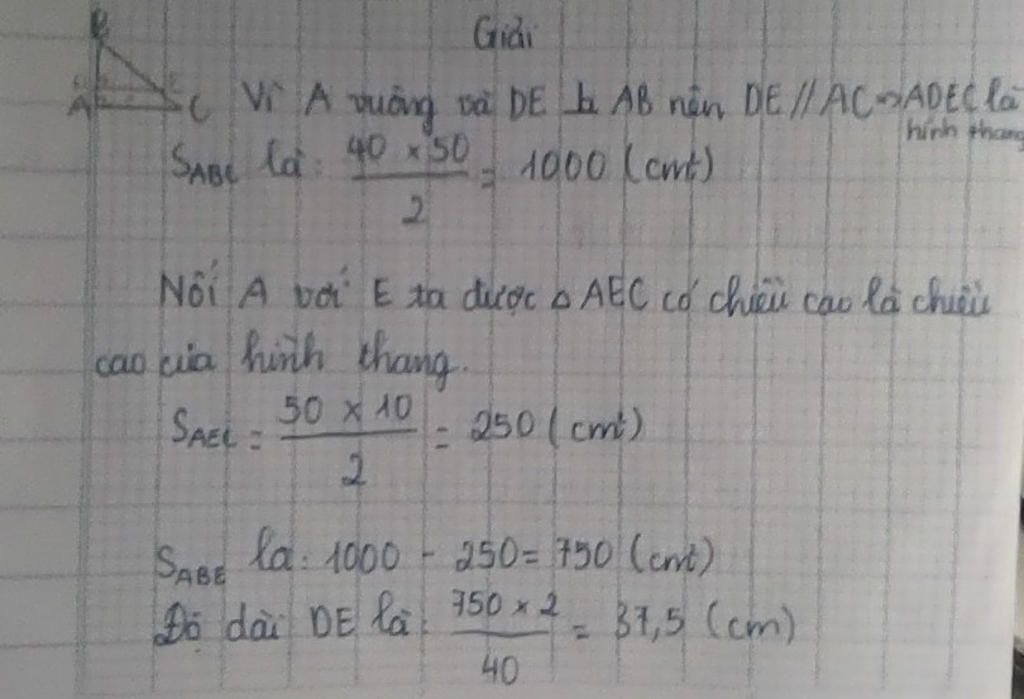 Giải
B
A C Vì A vuông và DE ⊥ AB nên DE // AC => ADEC là
hình thang
SABC là: 40 x 50 / 2 = 1000 (cm²)
Nối A với E ta được Δ AEC có chiều cao là chiều
cao của hình thang.
SAEC = 50 x 10 / 2 = 250 (cm²)
SABE là: 1000 - 250 = 750 (cm²)
Độ dài DE là: 750 x 2 / 40 = 37,5 (cm)